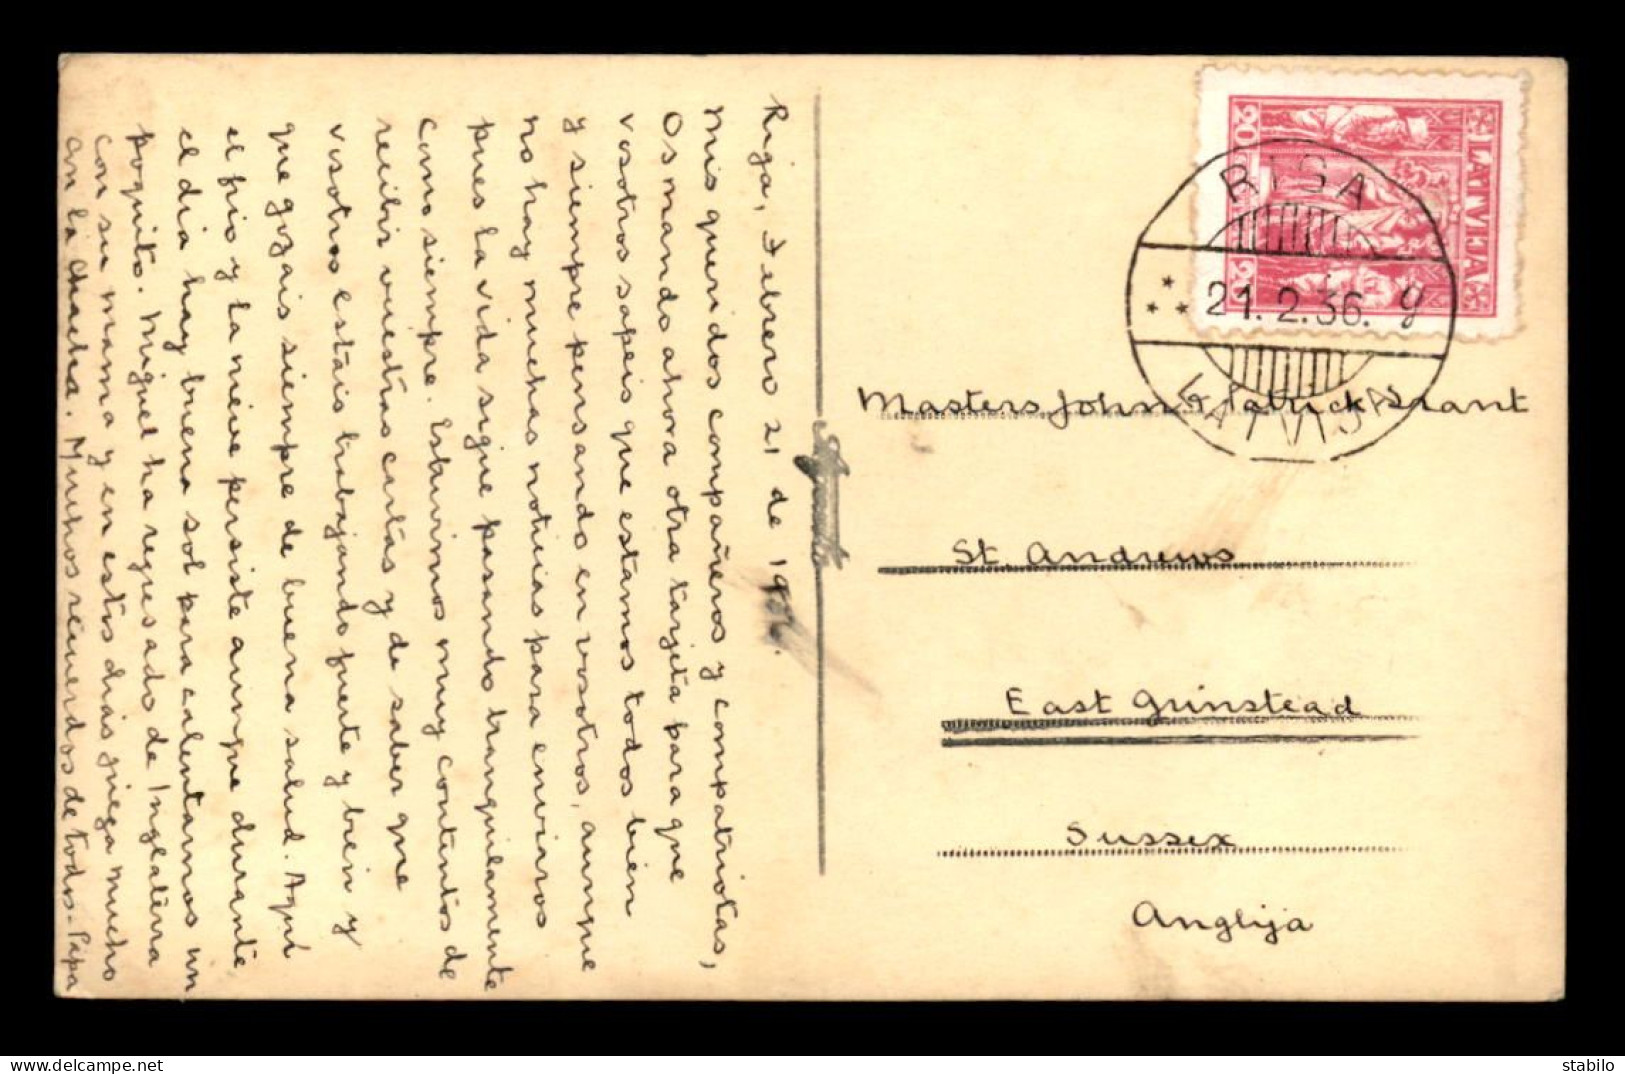 Riga, Febrero 21 de 1936.
Mis queridos compañeros y compatriotas,
Os mando ahora otra tarjeta para que
vosotros sapeis que estamos todos bien
y siempre pensando en vosotros, aunque
no hay muchas noticias para enviaros
pues la vida sigue pasando tranquilamente
como siempre. Estuvimos muy contentos de
recibir vuestras cartas y de saber que
vosotros estáis trabajando fuerte y bien y
que gozais siempre de buena salud. Aquí
el frio y la nieve persiste aunque durante
el dia hay buena sol para calentarnos un
poquito. Miguel ha regresado de Inglaterra
con su mama y en estos dias juega mucho
en la chacha. Muchos recuerdos de todos - Papa
LATVIJA
20 20
RIGA
21.2.36. g
LATVIJA
Masters John & Patrick Grant
St. Andrews
East Grinstead
Sussex
Anglija
stabilo